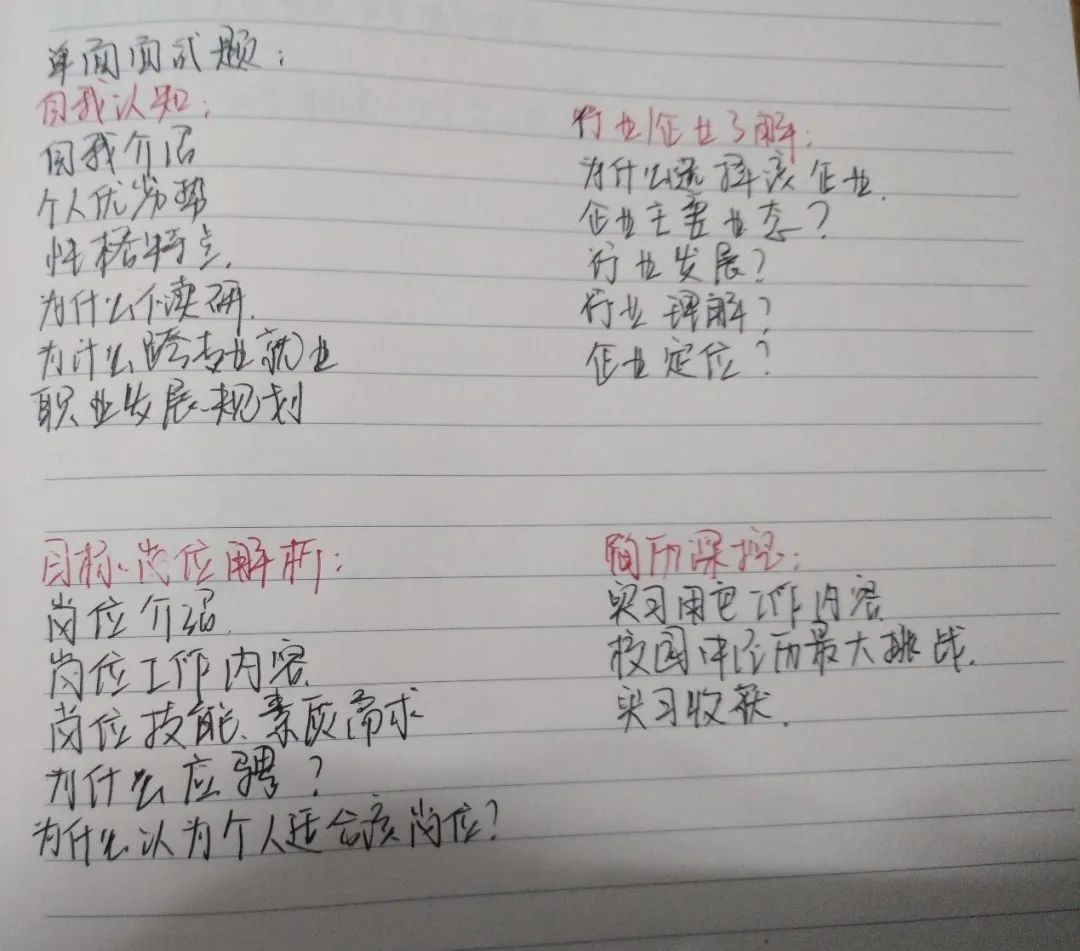 单面面试题：
自我认知：
自我介绍
个人优劣势
性格特点.
为什么不读研.
为什么跨专业就业
职业发展规划
行业/企业了解：
为什么选择该企业.
企业主要业态？
行业发展？
行业理解？
企业定位？
目标岗位解析：
岗位介绍.
岗位工作内容.
岗位技能、素质需求
为什么应聘？
为什么认为个人适合该岗位？
简历深挖：
实习工作内容.
校园中经历最大挑战.
实习收获.